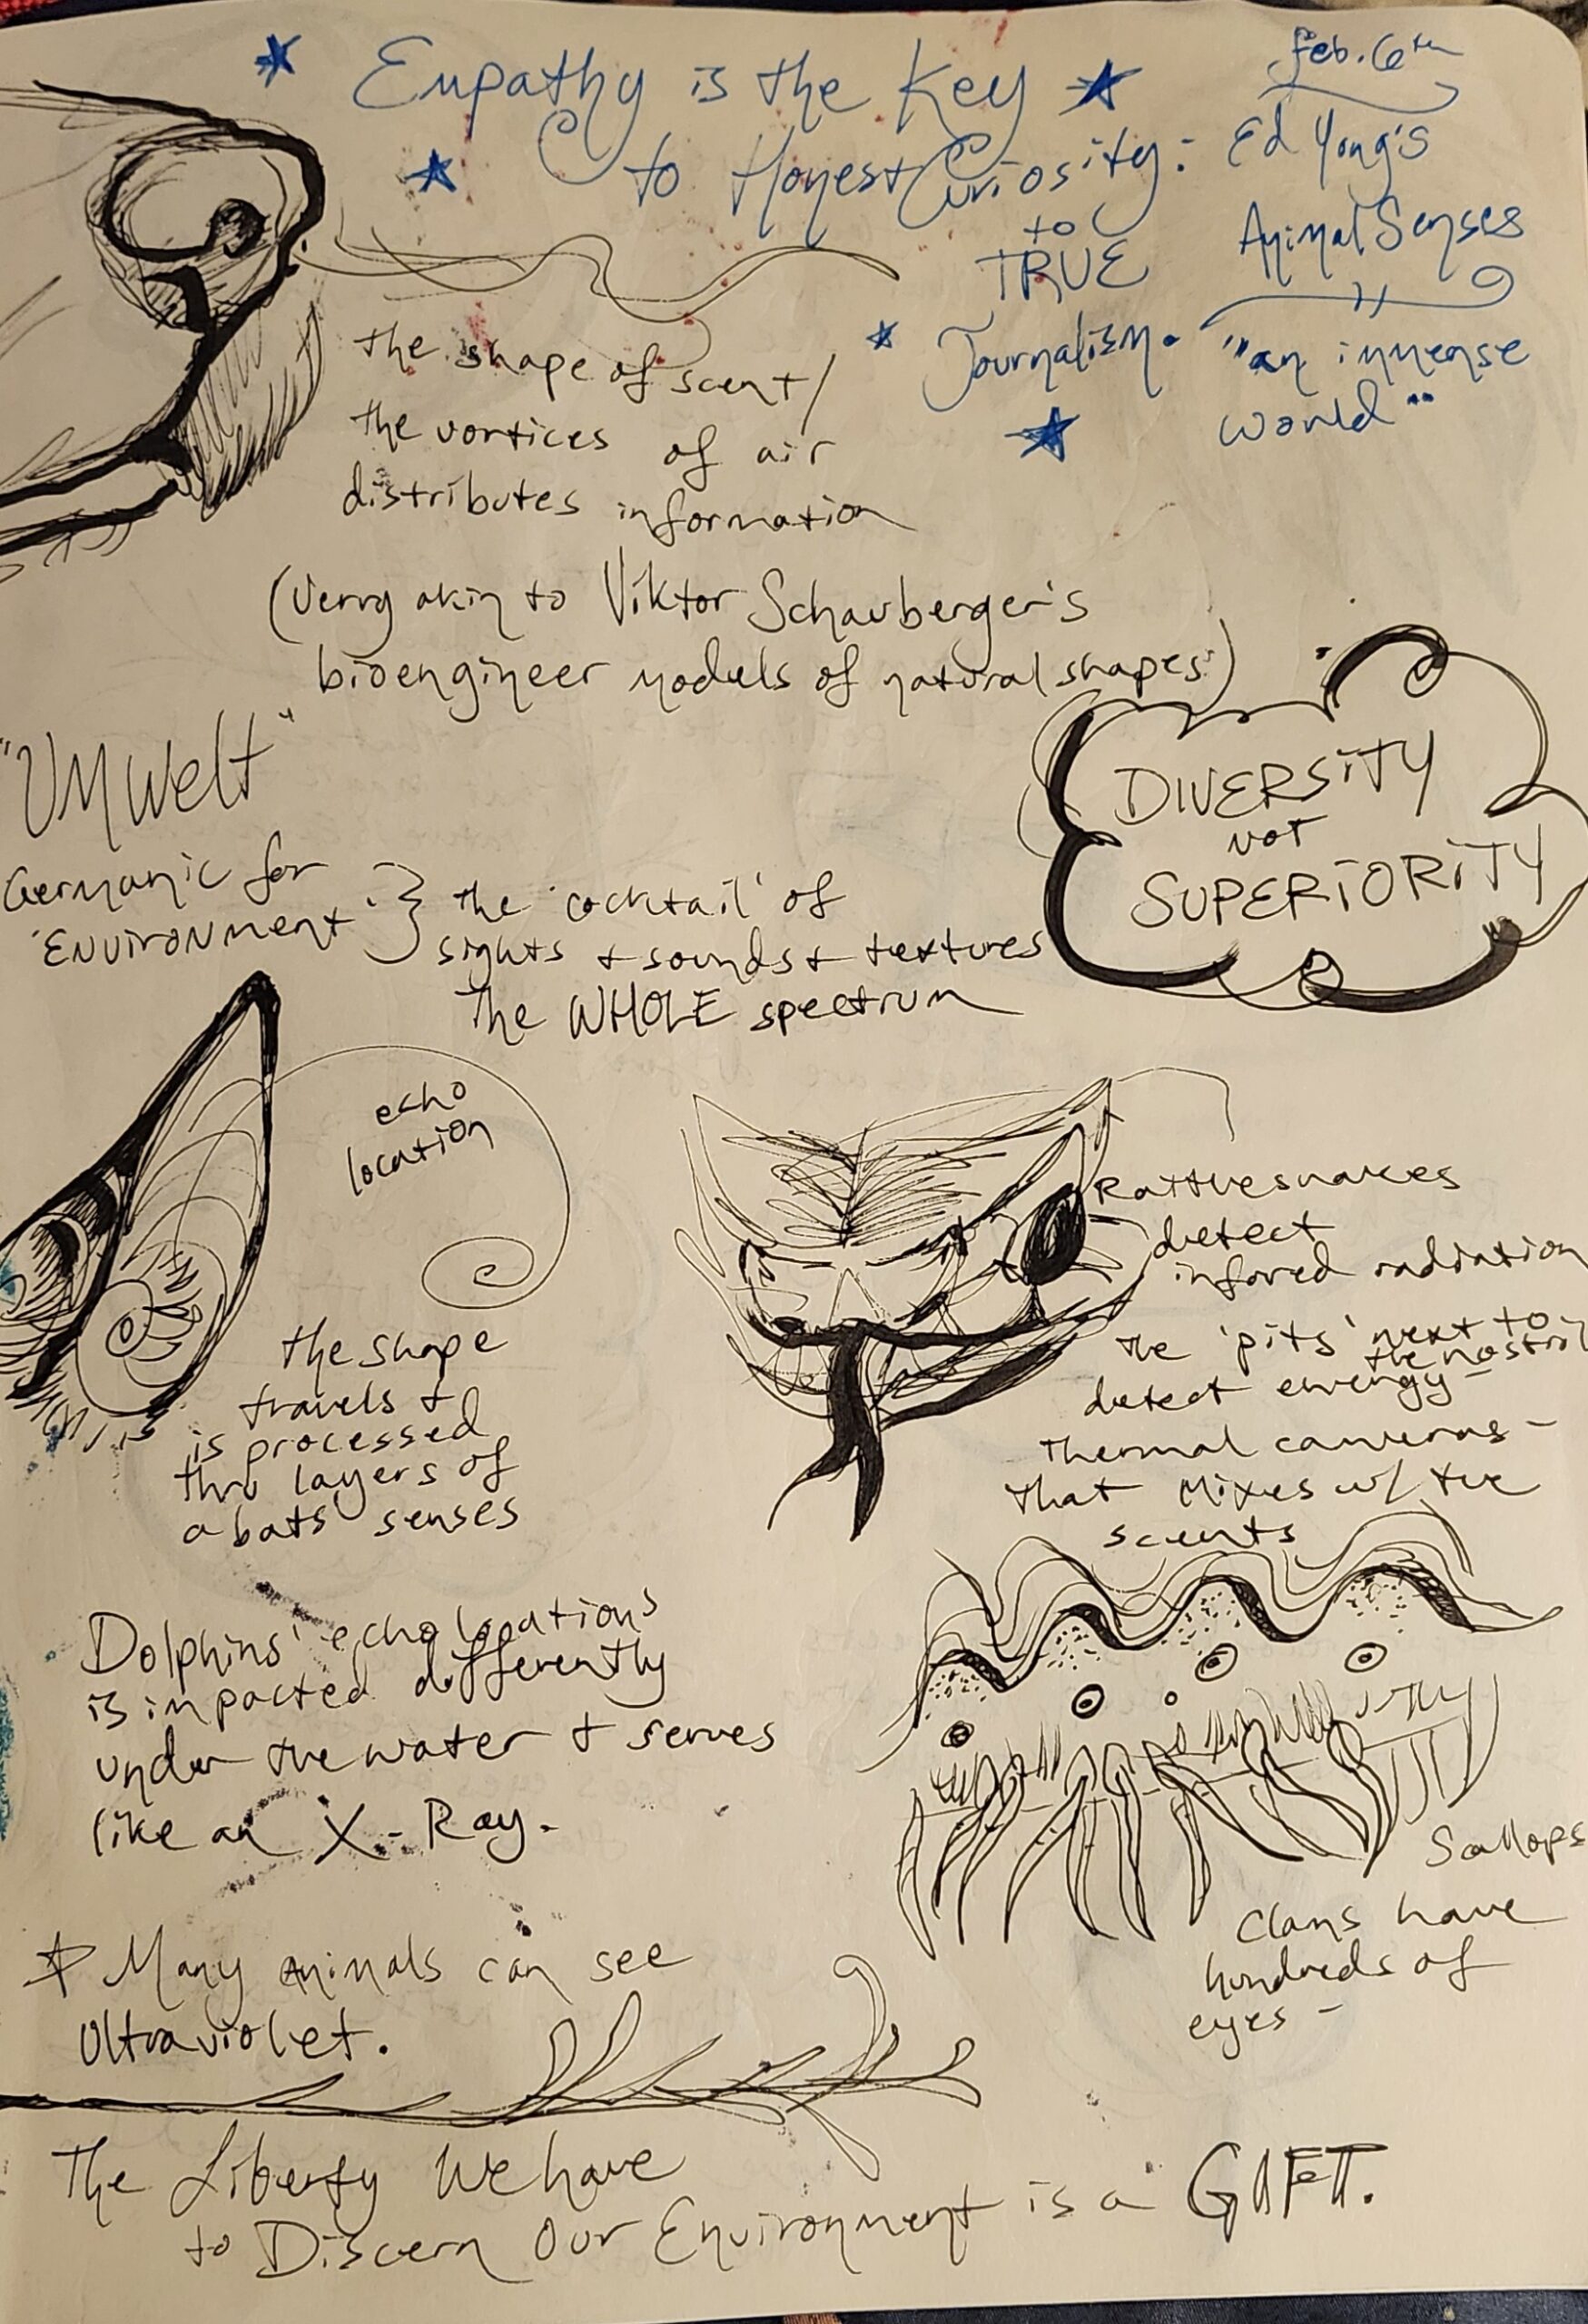 Empathy is the Key
to Honest Curiosity:
to
TRUE
Journalism.
Feb. 6th
Ed Yong's
Animal Senses
"an immense
world"
the shape of scent/
the vortices of air
distributes information
(Verry akin to Viktor Schauberger's
bioengineer models of natural shapes)
"UMWelt"
Germanic for
'ENVIRONment'
the 'cocktail' of
sights + sounds + textures
the WHOLE spectrum
DIVERSiTY
NOT
SUPERiORiTY
echo
location
the shape
travels +
is processed
thru layers of
a bats senses
Rattlesnakes
detect
infared radiation
the 'pits' next to
the nostril
detect energy -
thermal cameras -
that mixes w/ the
scents
Dolphins' echo locations
is impacted differently
under the water + serves
like an X-Ray.
Scallops
Clams have
hundreds of
eyes -
Many animals can see
Ultraviolet.
The Liberty We have
to Discern Our Environment is a GIFT.